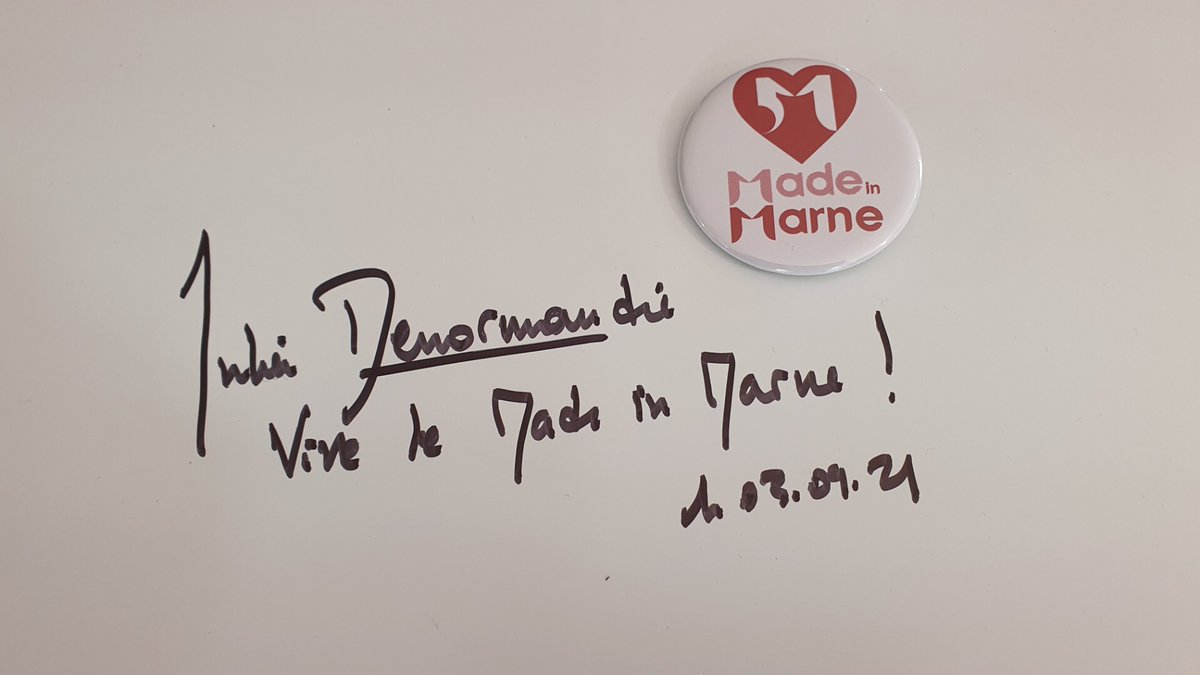 M
Made in
Marne
Julien Denormandie
Vive le Made in Marne !
le 03.09.21